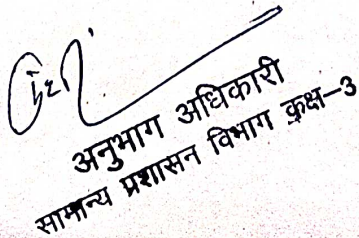 अनुभाग अधिकारी
सामान्य प्रशासन विभाग कक्ष–3